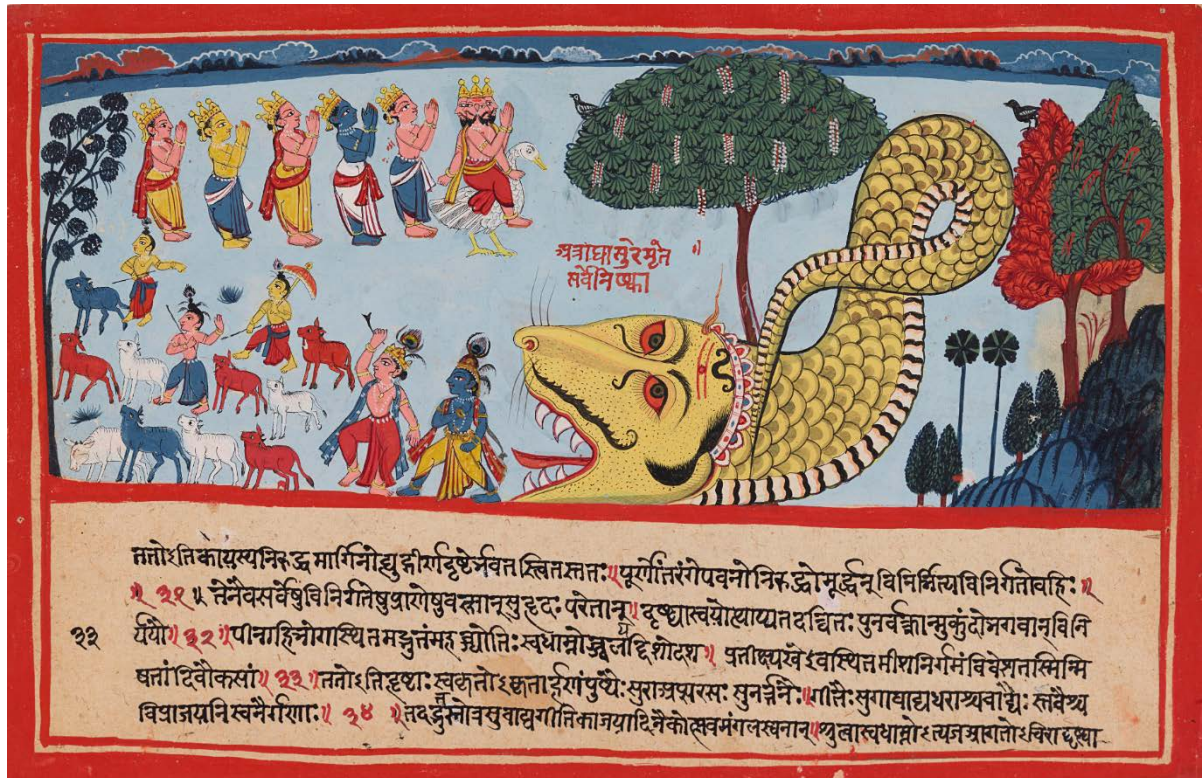 अत्राघासुरेमृते
सर्वेनिष्का
ततोऽतिकायस्यनिरुद्धमार्गिनोह्युद्गीर्णदृष्टेर्भ्रवतस्त्वितस्ततः॥पूर्णोंतरंगेपवनोनिरुद्धोमूर्द्धन्विनिर्भित्यविनिर्गतोवहिः॥
॥३१॥तेनैवसर्वेषुविनिर्गतेषुप्राणेषुवत्सान्सुहृदःपरेतान्॥दृष्ट्यास्वयोत्थाप्यतदन्वितःपुनर्वक्त्रान्मुकुंदोभगवान्विनि
३३ र्ययौ॥३२॥पीनाहिभोगोत्थितमद्भुतंमहज्ज्योतिःस्वधाम्नोज्ज्वलयद्दिशोदश॥प्रतीक्ष्यखेऽवस्थितमीशनिर्गमंविवेशतस्मिन्मि
षतांदिवौकसां॥३३॥ततोऽतिहृष्टाःस्वकृतोऽकृतार्हणंपुष्पैःसुराअप्सरसःसुनर्त्तनैः॥गीतैःसुगावाद्यधराश्चवाद्यैःस्तवैश्च
विप्राजयनिस्वनैर्गणाः॥३४॥तदद्भुतस्तोत्रसुवाद्यगीतिकाजयादिनैकोत्सवमंगलस्वनान्॥श्रुत्वास्वधाम्नोऽत्यजआगतोऽचिराद्दृष्ट्वा